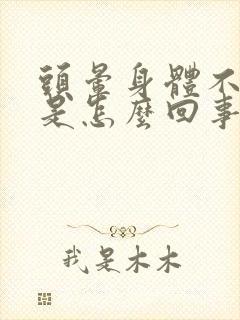 頭暈身體不
是怎麼回事
我是木木